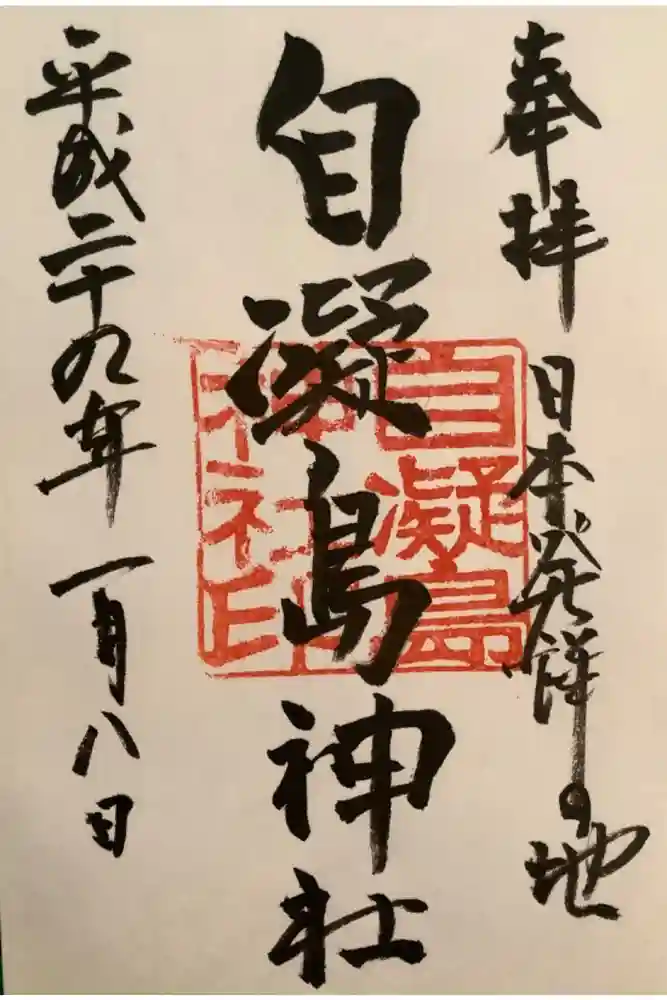 奉拝 日本発祥の地
自凝島神社
平成二十九年一月八日
自凝島
神社印